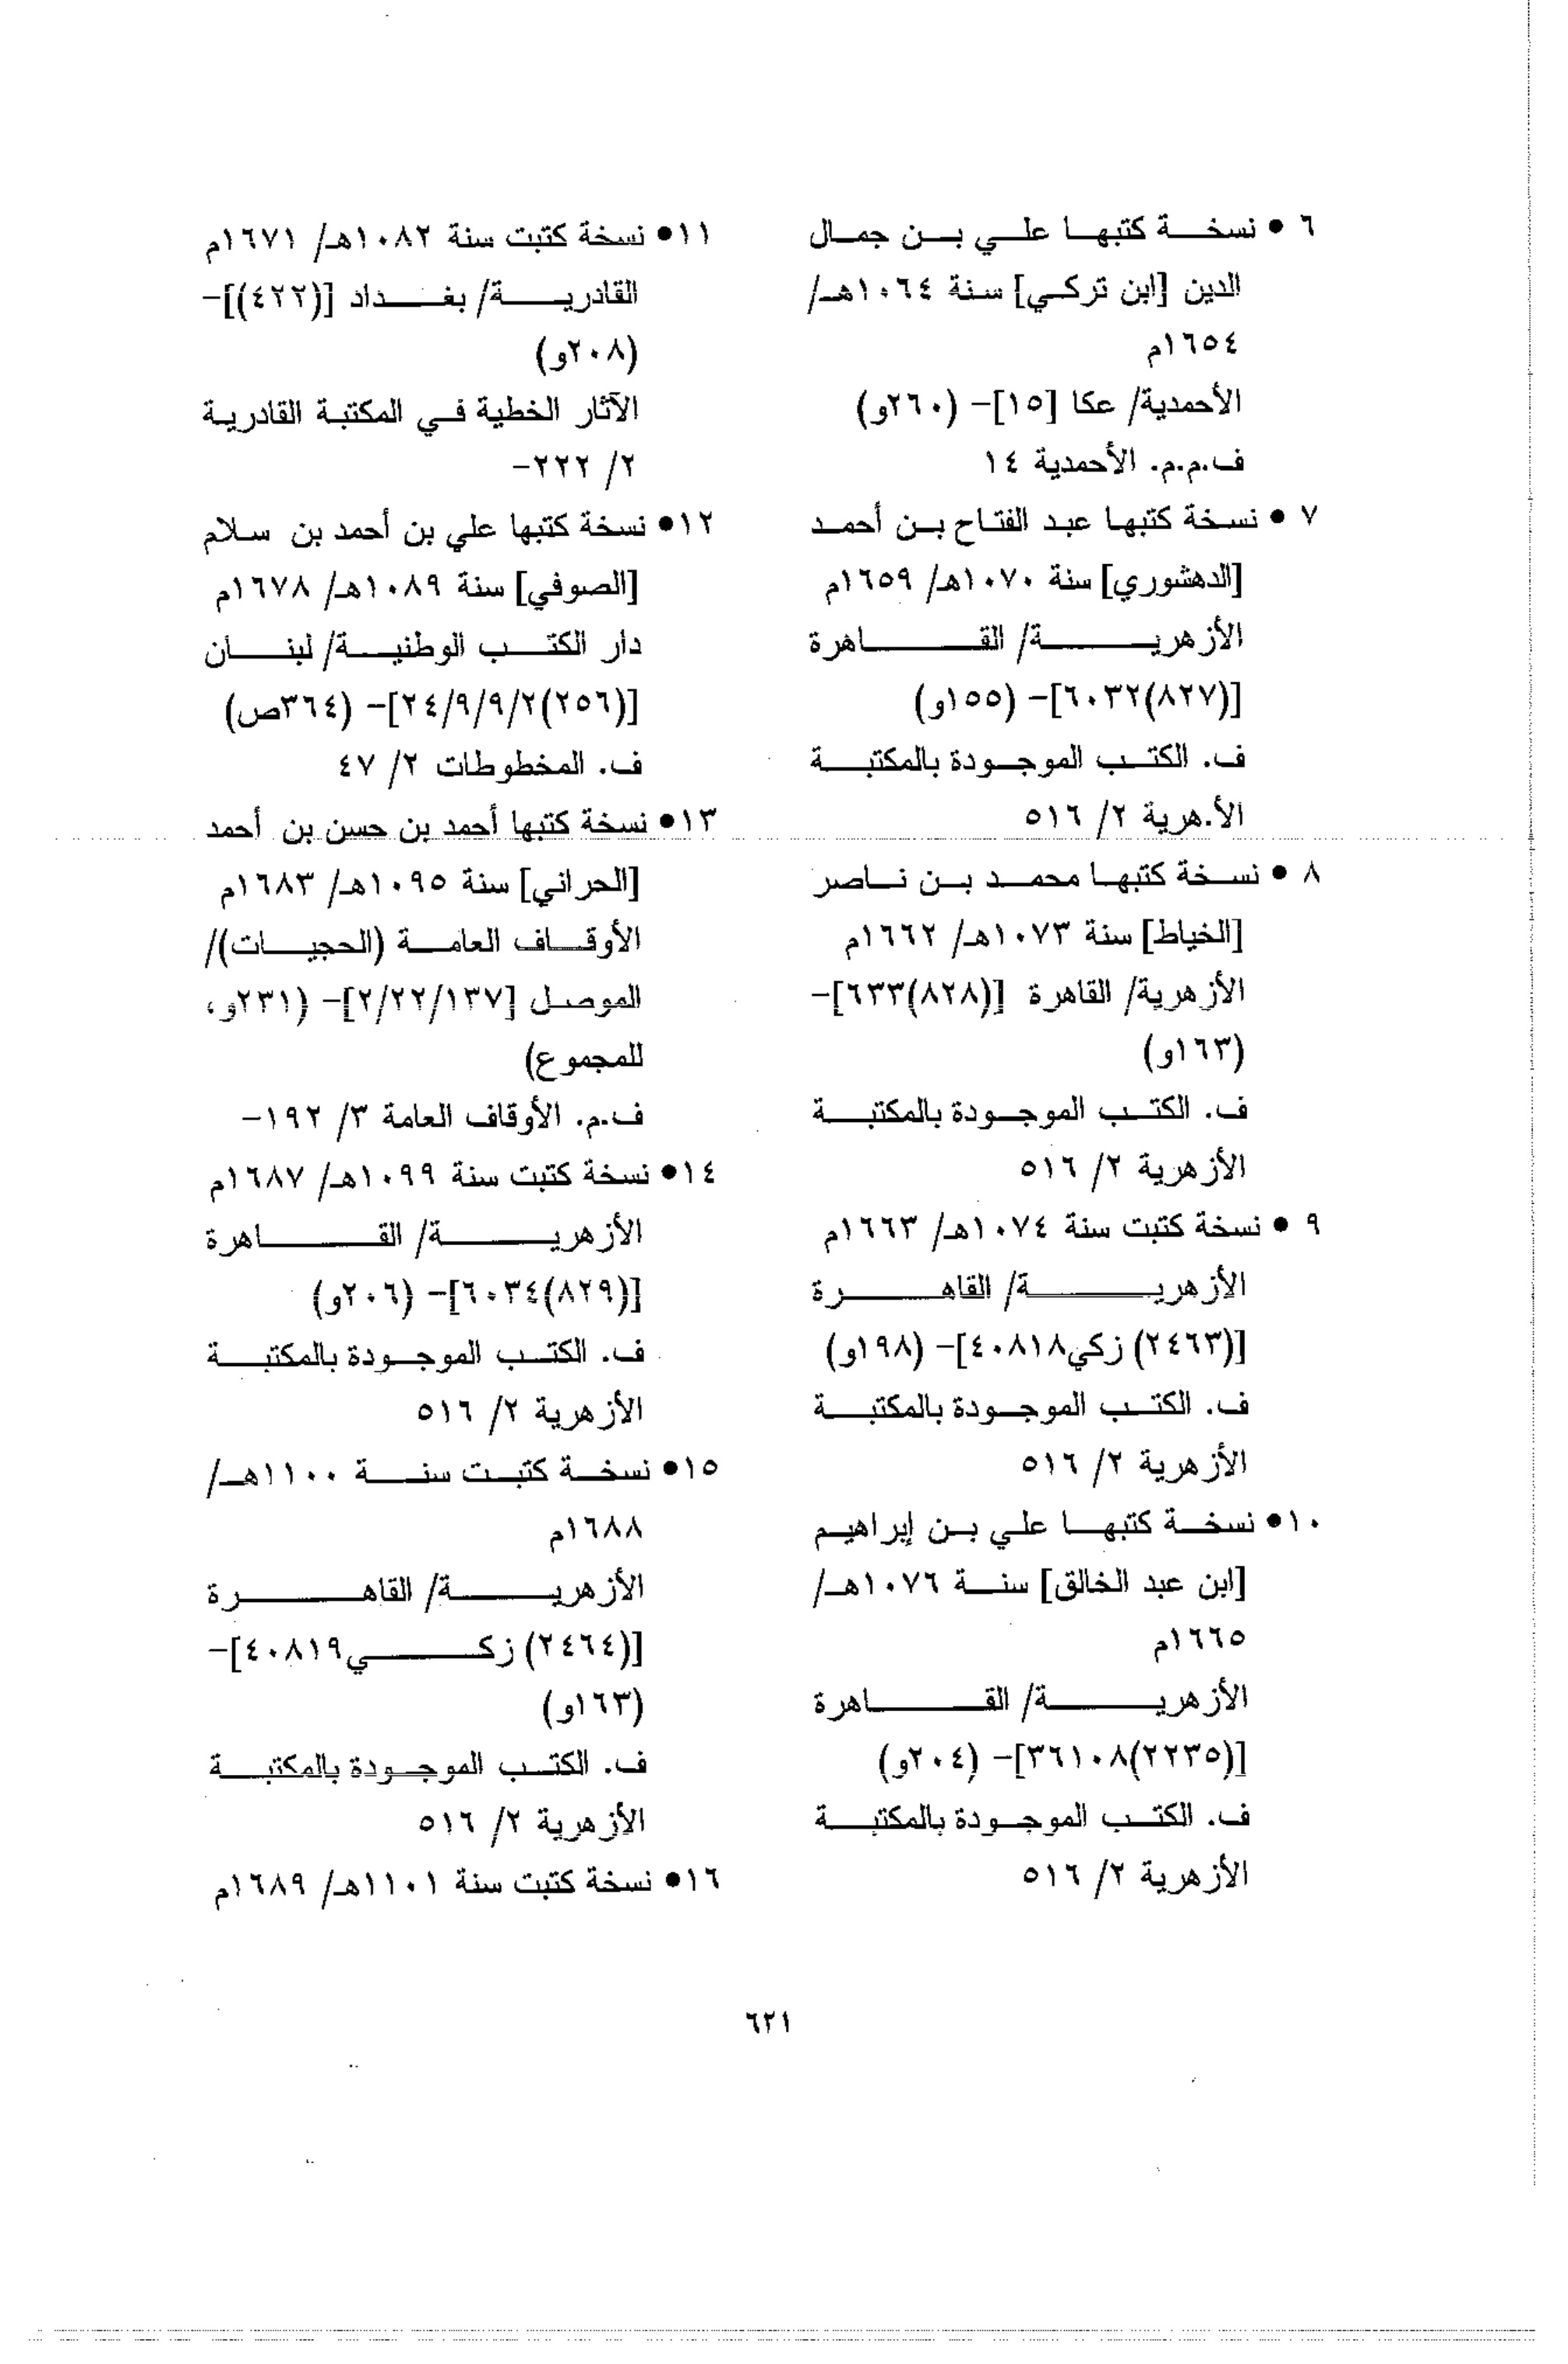 ٦ • نسخة كتبها علي بن جمال
الدين [ابن تركي] سنة ١٠٦٤هـ/
١٦٥٤م
الأحمدية/ عكا [١٥]- (٢٦٠و)
ف.م.م. الأحمدية ١٤
٧ • نسخة كتبها عبد الفتاح بن أحمد
[الدهشوري] سنة ١٠٧٠هـ/ ١٦٥٩م
الأزهرية/ القاهرة
[(٨٢٧)٦٠٣٢]- (١٥٥و)
ف. الكتب الموجودة بالمكتبة
الأ.هرية ٢/ ٥١٦
٨ • نسخة كتبها محمد بن ناصر
[الخياط] سنة ١٠٧٣هـ/ ١٦٦٢م
الأزهرية/ القاهرة [(٨٢٨)٦٣٣]-
(١٦٣و)
ف. الكتب الموجودة بالمكتبة
الأزهرية ٢/ ٥١٦
٩ • نسخة كتبت سنة ١٠٧٤هـ/ ١٦٦٣م
الأزهرية/ القاهرة
[(٢٤٦٣) زكي٤٠٨١٨]- (١٩٨و)
ف. الكتب الموجودة بالمكتبة
الأزهرية ٢/ ٥١٦
١٠• نسخة كتبها علي بن إبراهيم
[ابن عبد الخالق] سنة ١٠٧٦هـ/
١٦٦٥م
الأزهرية/ القاهرة
[(٢٢٣٥)٣٦١٠٨]- (٢٠٤و)
ف. الكتب الموجودة بالمكتبة
الأزهرية ٢/ ٥١٦
١١• نسخة كتبت سنة ١٠٨٢هـ/ ١٦٧١م
القادرية/ بغداد [(٤٢٢)]-
(٢٠٨و)
الآثار الخطية في المكتبة القادرية
٢/ ٢٢٢-
١٢• نسخة كتبها علي بن أحمد بن سلام
[الصوفي] سنة ١٠٨٩هـ/ ١٦٧٨م
دار الكتب الوطنية/ لبنان
[(٢٥٦)٢٤/٩/٩/٢]- (٣٦٤ص)
ف. المخطوطات ٢/ ٤٧
١٣• نسخة كتبها أحمد بن حسن بن أحمد
[الحراني] سنة ١٠٩٥هـ/ ١٦٨٣م
الأوقاف العامة (الحجيات)/
الموصل [٢/٢٢/١٣٧]- (٢٣١و،
للمجموع)
ف.م. الأوقاف العامة ٣/ ١٩٢-
١٤• نسخة كتبت سنة ١٠٩٩هـ/ ١٦٨٧م
الأزهرية/ القاهرة
[(٨٢٩)٦٠٣٤]- (٢٠٦و)
ف. الكتب الموجودة بالمكتبة
الأزهرية ٢/ ٥١٦
١٥• نسخة كتبت سنة ١١٠٠هـ/
١٦٨٨م
الأزهرية/ القاهرة
[(٢٤٦٤) زكي٤٠٨١٩]-
(١٦٣و)
ف. الكتب الموجودة بالمكتبة
الأزهرية ٢/ ٥١٦
١٦• نسخة كتبت سنة ١١٠١هـ/ ١٦٨٩م
٦٢١